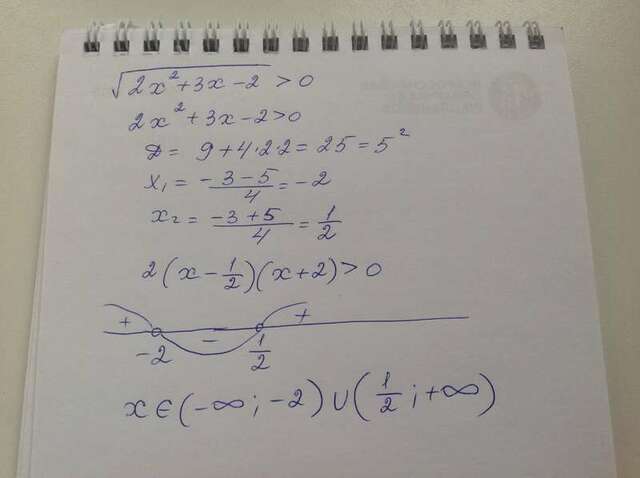 √(2x² + 3x − 2) > 0
2x² + 3x − 2 > 0
Д = 9 + 4·2·2 = 25 = 5²
x₁ = (−3 − 5)/4 = −2
x₂ = (−3 + 5)/4 = 1/2
2(x − 1/2)(x + 2) > 0
+ − +
−2 1/2
x ∈ (−∞; −2) ∪ (1/2; +∞)